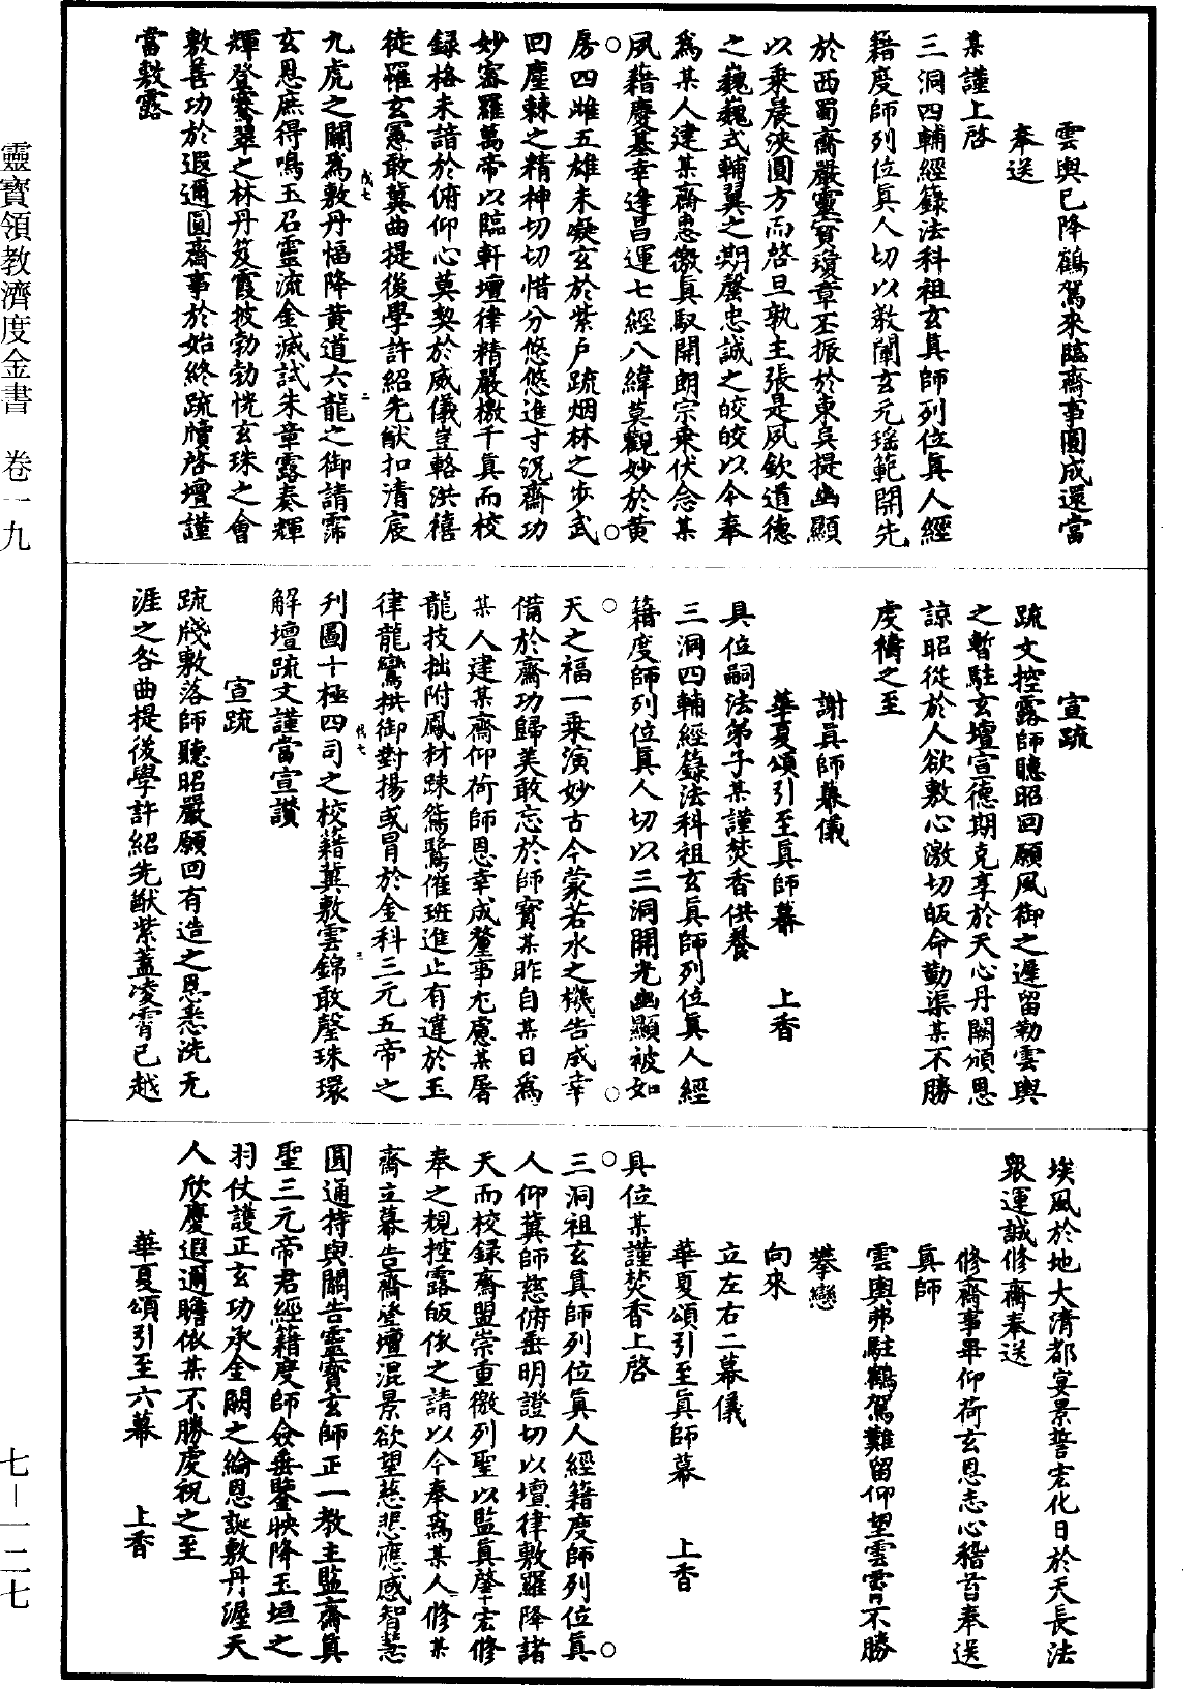 雲輿已降鶴駕來臨齋事圓成還當
奉送
某謹上啓
三洞四輔經籙法科祖玄真師列位真人經
籍度師列位真人切以教闡玄元瑶範開先
於西蜀齋嚴靈寶瓊章丕振於東吳提幽顯
以乘晨浹圓方而啓旦孰主張是夙欽道德
之巍巍式輔翼之期罄忠誠之皎皎以今奉
爲某人建某齋惠徼真馭開朗宗乘伏念某
夙藉慶基幸逢昌運七經八緯莫觀妙於黃
房四雌五雄未凝玄於紫戶疏烟林之步武
回塵棘之精神切切惜分悠悠進寸況齋功
妙審羅萬帝以臨軒壇律精嚴檄千真而校
録格未諳於俯仰心莫契於威儀豈輅洪禧
徒罹玄憲敢冀曲提後學許紹先猷扣清宸
九虎之關爲敷丹愊降黃道六龍之御請霈
玄恩庶得鳴玉召靈流金滅試朱章露奏輝
輝登騫翠之林丹笈霞披勃勃恍玄珠之會
敷善功於遐邇圓齋事於始終疏牘啓壇謹
當敷露
宣疏
疏文控露師聽昭回願風御之遲留勒雲輿
之暫駐玄壇宣德期克享於天心丹闕頒恩
諒昭從於人欲敷心激切皈命勤渠某不勝
虔禱之至
謝真師幕儀
華夏頌引至真師幕 上香
具位嗣法弟子某謹焚香供養
三洞四輔經籙法科祖玄真師列位真人經
籍度師列位真人切以三洞開光幽顯被如
天之福一乘演妙古今蒙若水之機告成幸
備於齋功歸美敢忘於師寶某昨自某日爲
某人建某齋仰荷師恩幸成釐事尤慮某屠
龍技拙附鳳材踈鵷鷺僬班進止有違於玉
律龍鸞栱御對揚或冒於金科三元五帝之
刋圖十極四司之校藉冀敷雲錦敢罄珠環
解壇疏文謹當宣讚
宣疏
疏牋敷落師聽昭嚴願回有造之恩悉洗无
涯之咎曲提後學許紹先猷紫蓋凌霄已越
埃風於地大清都宴景誓宏化日於天長法
衆運誠修齋奉送
修齋事畢仰荷玄恩志心稽首奉送
真師
雲輿弗駐鶴駕難留仰望雲霄不勝
攀戀
向來
立左右二幕儀
華夏頌引至真師幕 上香
具位某謹焚香上啓
三洞祖玄真師列位真人經籍度師列位真
人仰冀師慈俯垂明證切以壇律敷羅降諸
天而校録齋盟崇重徼列聖以監真肇宏修
奉之規控露皈依之請以今奉爲某人修某
齋立幕告齋登壇混景欲望慈悲應感智慧
圓通特與關告靈寶玄師正一教主監齋真
聖三元帝君經籍度師僉垂鑒映降玉垣之
羽仗護正玄功承金闕之綸恩誕敷丹渥天
人欣慶遐邇瞻依某不勝虔祝之至
華夏頌引至六幕 上香
靈寶領教濟度金書 卷一九
七—一二七